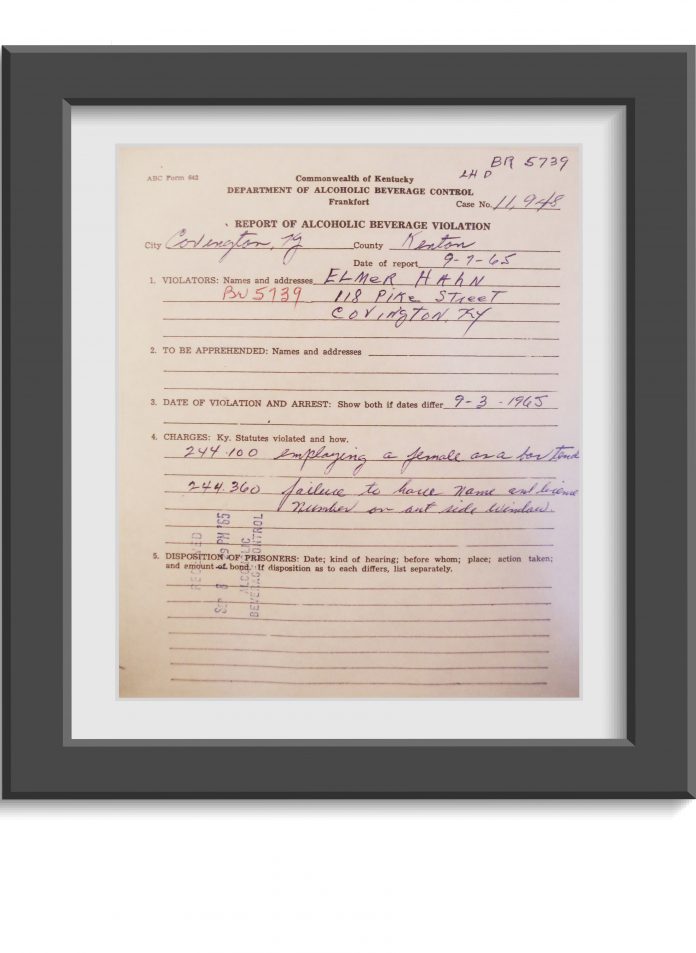 BR 5739
LHD
ABC Form 642
Commonwealth of Kentucky
DEPARTMENT OF ALCOHOLIC BEVERAGE CONTROL
Frankfort
Case No. 11,948
REPORT OF ALCOHOLIC BEVERAGE VIOLATION
City Covington, Ky County Kenton
Date of report 9-7-65
1. VIOLATORS: Names and addresses ELMER HAHN
BW 5739 118 PIKE STREET
COVINGTON, KY
2. TO BE APPREHENDED: Names and addresses
3. DATE OF VIOLATION AND ARREST: Show both if dates differ 9-3-1965
4. CHARGES: Ky. Statutes violated and how.
244.100 employing a female as a bar tend
244.360 failure to have name and license
number on out side window.
5. DISPOSITION OF PRISONERS: Date; kind of hearing; before whom; place; action taken;
and amount of bond. If disposition as to each differs, list separately.
RECEIVED
SEP 8 PM '65
ALCOHOLIC
BEVERAGE CONTROL